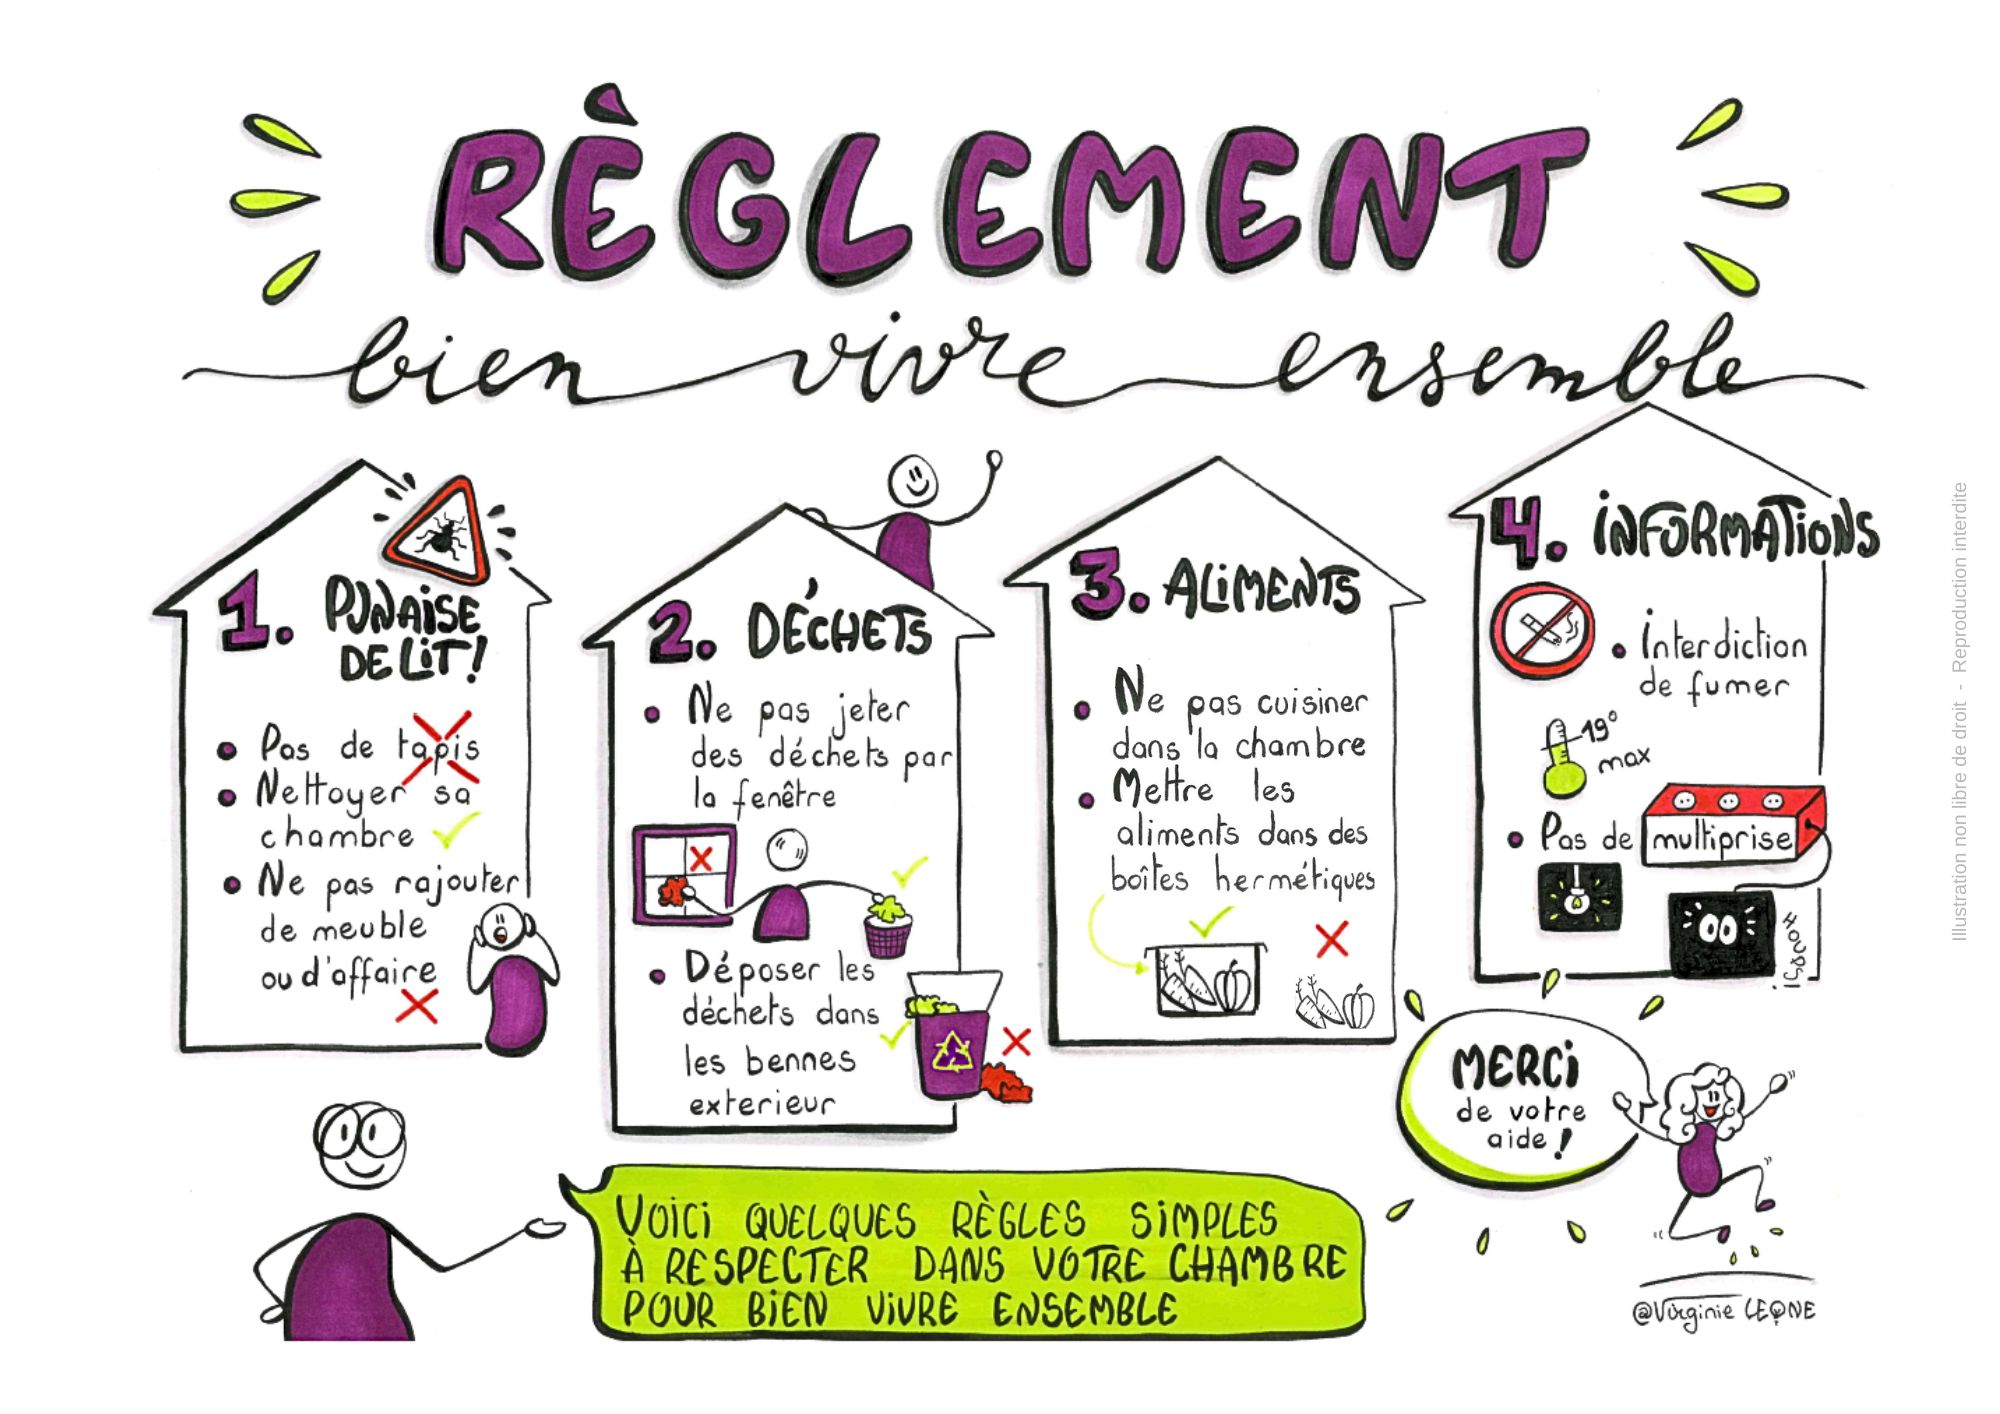 RÈGLEMENT
bien vivre ensemble
1. PUNAISE
DE LIT !
• Pas de tapis
• Nettoyer sa
chambre
• Ne pas rajouter
de meuble
ou d'affaire
2. DÉCHETS
• Ne pas jeter
des déchets par
la fenêtre
• Déposer les
déchets dans
les bennes
exterieur
3. ALIMENTS
• Ne pas cuisiner
dans la chambre
• Mettre les
aliments dans des
boîtes hermétiques
4. INFORMATIONS
• Interdiction
de fumer
19°
max
• Pas de multiprise
MERCI
de votre
aide !
VOICI QUELQUES RÈGLES SIMPLES
À RESPECTER DANS VOTRE CHAMBRE
POUR BIEN VIVRE ENSEMBLE
@Virginie LEONE
Illustration non libre de droit - Reproduction interdite